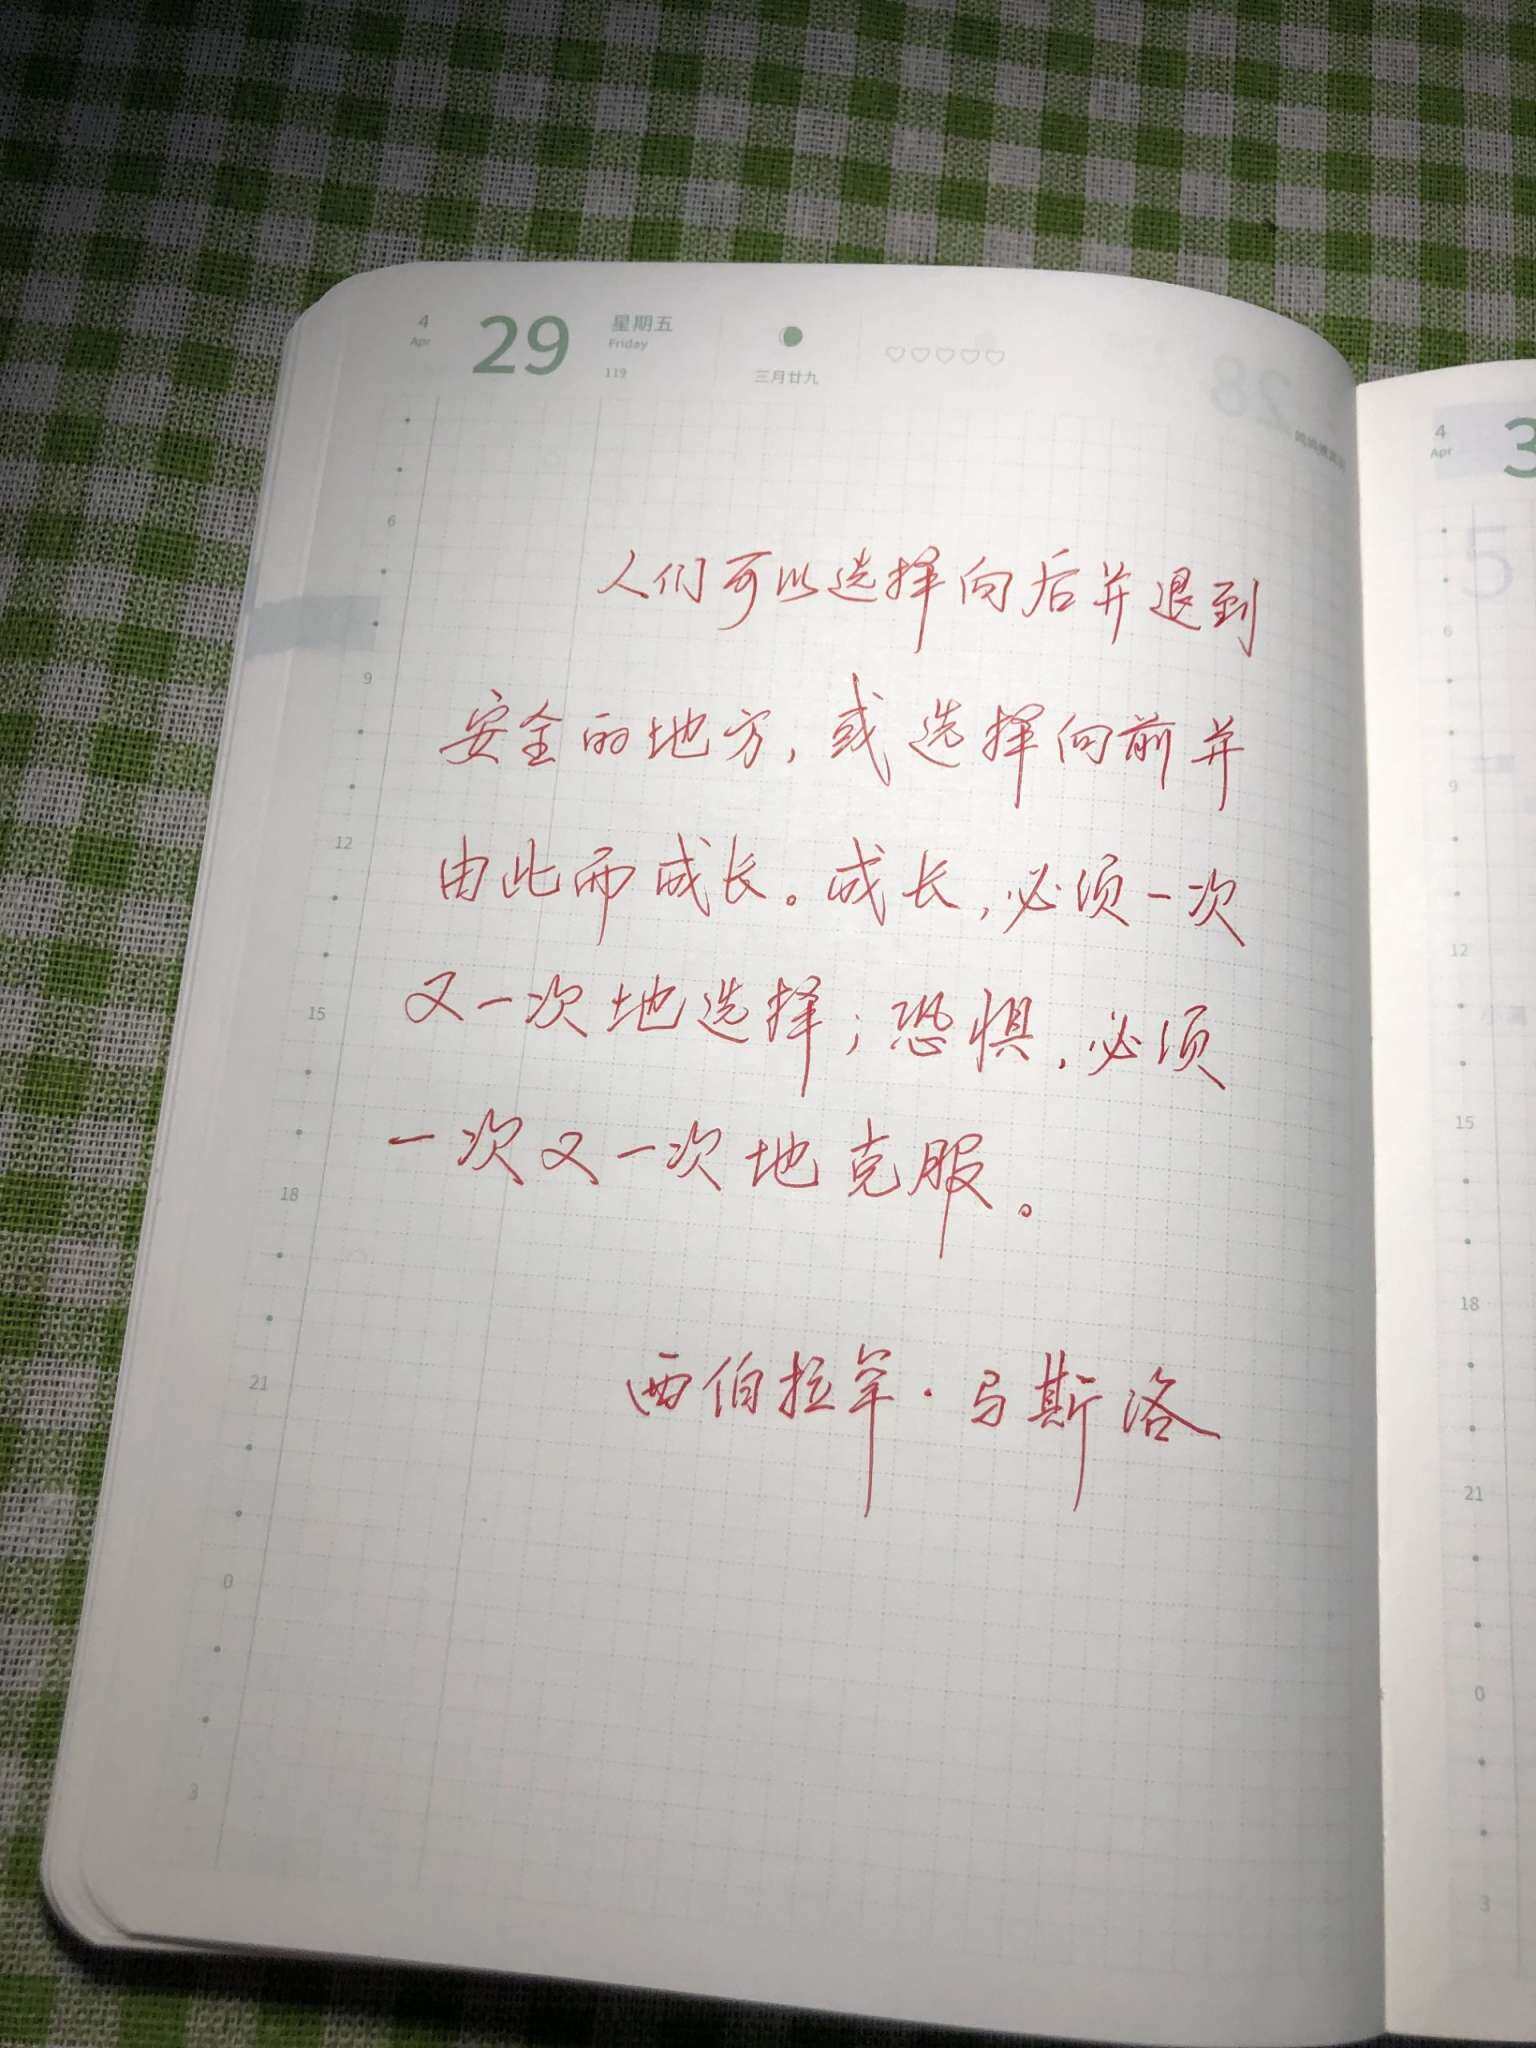 4 29 星期五
Apr Friday
119 三月廿九
28
人们可以选择向后并退到
安全的地方,或选择向前并
由此而成长。成长,必须一次
又一次地选择;恐惧,必须
一次又一次地克服。
西伯拉罕·马斯洛
6
9
12
15
18
21
0
3
4
Apr
5
6
9
12
15
18
21
0
3